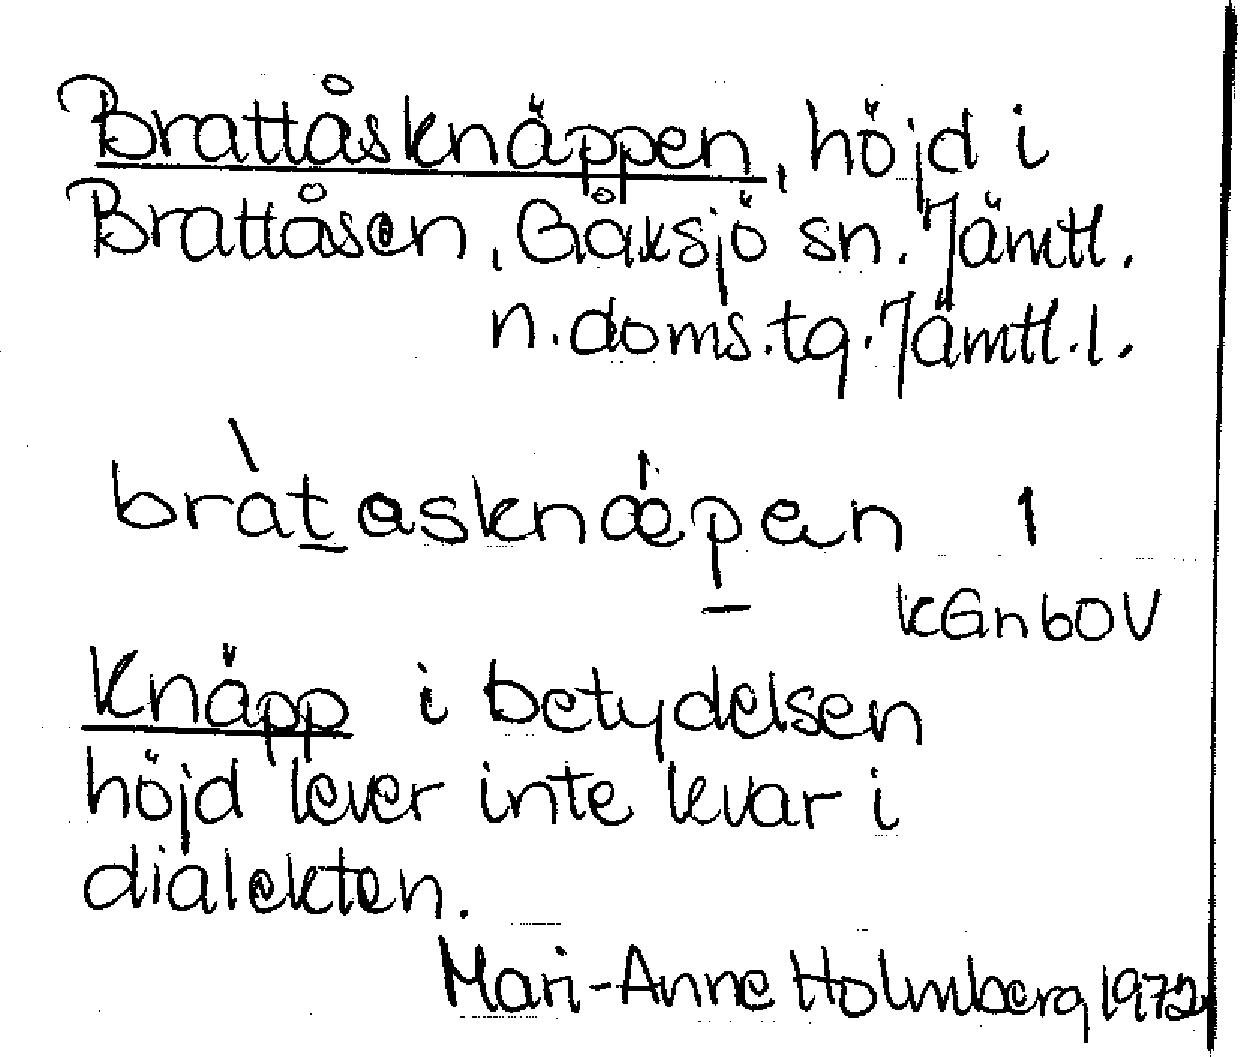 Brattåsknäppen, höjd i
Brattåsen, Gåxsjö sn. Jämtl.
n. doms.tg. Jämtl. l.
bràt̲asknǽp̲en 1
kGnbOV
Knäpp i betydelsen
höjd lever inte kvar i
dialekten.
Mari-Anne Holmberg 1972